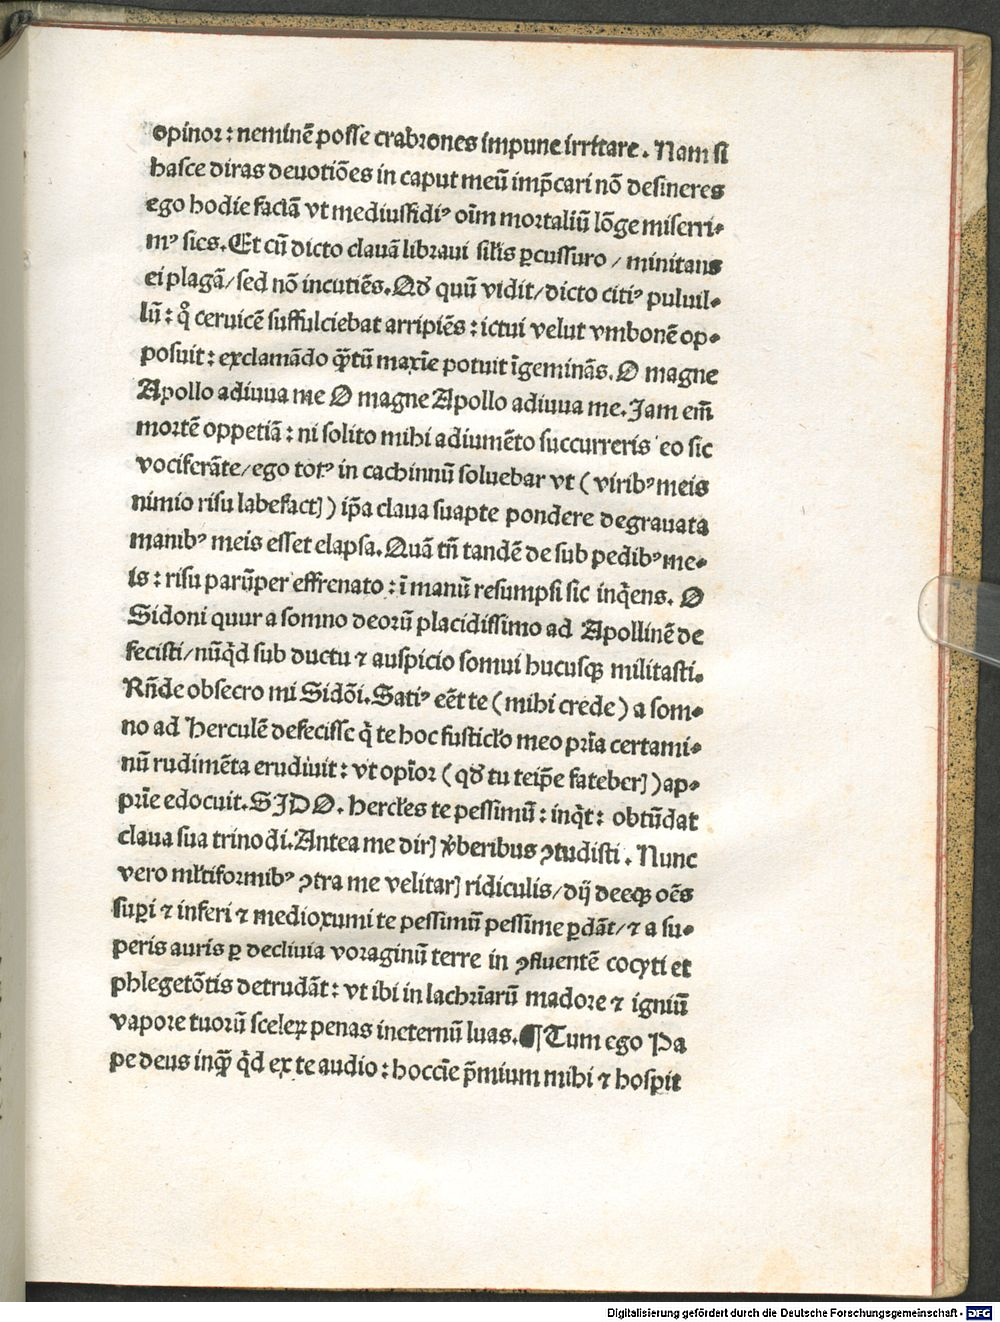 opinor: neminē posse crabrones impune irritare. Nam si
hasce diras deuotiōes in caput meū imp̄cari nō desineres
ego hodie faciā vt mediusfidiꝰ oīm mortaliū lōge miserri-
mꝰ sies. Et cū dicto clauā libraui silis ꝑcussuro / minitans
ei plagā/ sed nō incutiēs. Qd quū vidit/ dicto citiꝰ puluil-
lū: q̊ ceruicē suffulciebat arripiēs: ictui velut vmbonē op-
posuit: exclamādo q̄tū maxīe potuit īgeminās. O magne
Apollo adiuua me O magne Apollo adiuua me. Jam em̄
mortē oppetiā: ni solito mihi adiumēto succurreris eo sic
vociferāte/ ego totꝰ in cachinnū soluebar vt ( viribꝰ meis
nimio risu labefactꝭ ) ip̄a claua suapte pondere degrauata
manibꝰ meis esset elapsa. Quā tn̄ tandē de sub pedibꝰ me-
is: risu parūper effrenato: ī manū resumpsi sic inq̄ens. O
Sidoni quur a somno deorū placidissimo ad Apollinē de
fecisti/ nūq̄d sub ductu ⁊ auspicio somni hucusqꝫ militasti.
Rn̄de obsecro mi Sidōi. Satiꝰ eēt te ( mihi crede ) a som-
no ad Herculē defecisse q̄ te hoc fusticło meo prīa certami-
nū rudimēta erudiuit: vt opīor ( qd tu teip̄e fateberꝭ ) ap-
prīe edocuit. SIDO. Hercłes te pessimū: inq̄t: obtūdat
claua sua trinodi. Antea me dirꝭ v̄beribus ꝯtudisti. Nunc
vero młtiformibꝰ ꝯtra me velitarꝭ ridiculis/ dij deeqꝫ oēs
suꝑi ⁊ inferi ⁊ medioxumi te pessimū pessime ꝑdāt/ ⁊ a su-
peris auris ꝑ decliuia voraginū terre in ꝯfluentē cocyti et
phlegetōtis detrudāt: vt ibi in lachrīarū madore ⁊ igniū
vapore tuorū sceleꝝ penas ineternū luas. ¶ Tum ego Pa
pe deus inq̄ q̄d ex te audio: hoccīe p̄mium mihi ⁊ hospit
Digitalisierung gefördert durch die Deutsche Forschungsgemeinschaft - DFG